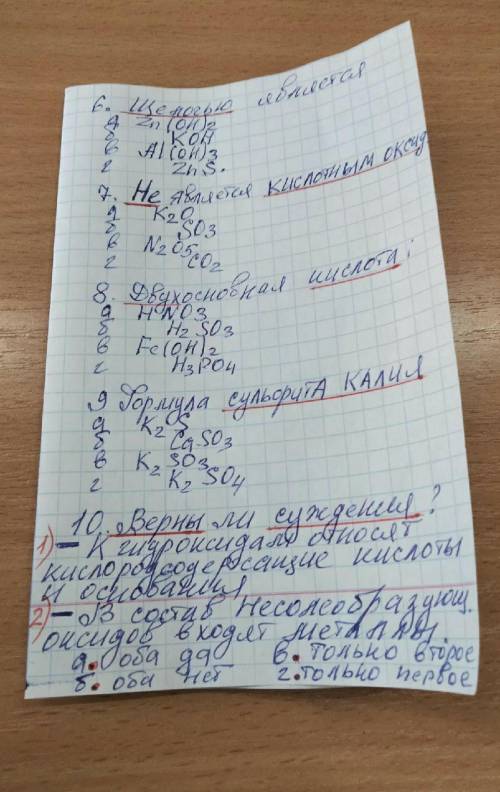 6. Щелочью является
а Zn(OH)2
б KOH
в Al(OH)3
г ZnS.
7. Не является кислотным оксид
а K2O
б SO3
в N2O5
г CO2
8. Двухосновная кислота:
а HNO3
б H2SO3
в Fe(OH)2
г H3PO4
9 Формула сульфита КАЛИЯ
а K2S
б CaSO3
в K2SO3
г K2SO4
10. Верны ли суждения?
1) – К гидроксидам относят
кислородсодерсащие кислоты
и основания
2) – В состав несолеобразующ.
оксидов входят металлы.
а. оба да в. только второе
б. оба нет г. только первое